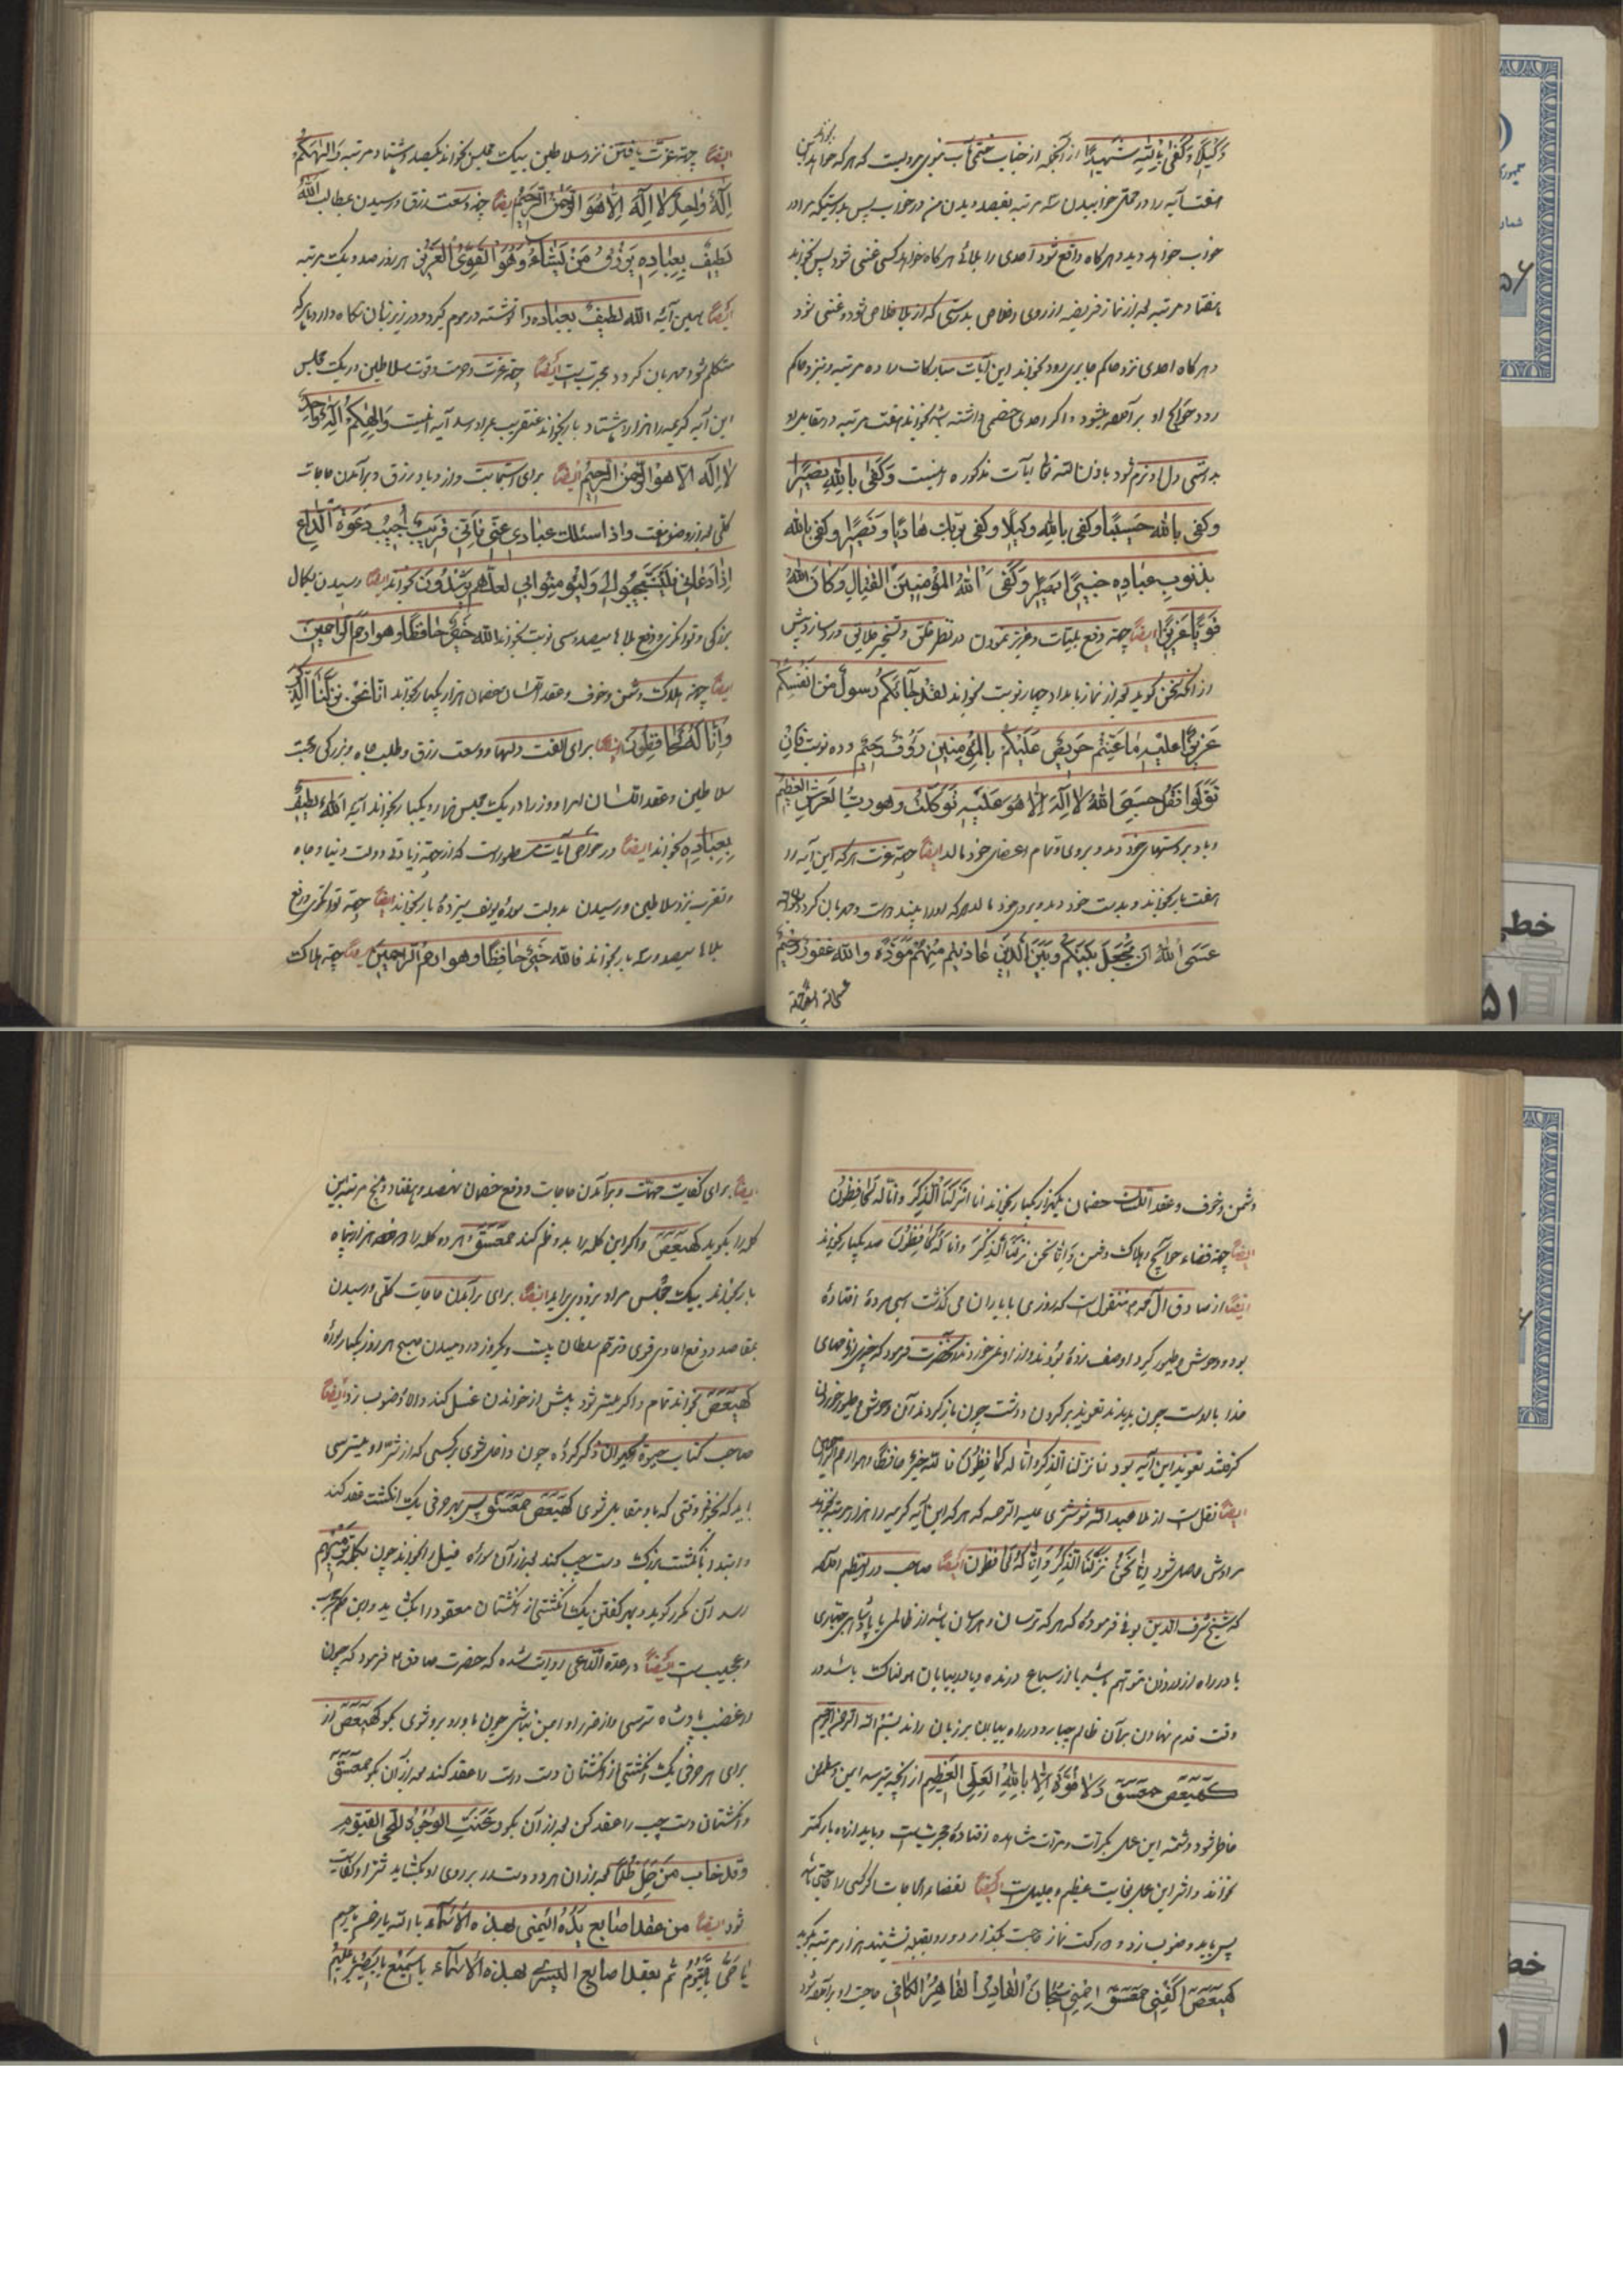 وَکیلًا وَکَفی بِاللهِ شَهیدًا از آنجمله از جناب ختمی مآب نبوی مرویست که هر که خواهد این بخواند
هفت آیه را در محل خوابیدن سه مرتبه بقصد دیدن من در خواب پس بدرستیکه مرا در
خواب خواهد دید و هرگاه واقع شود احدی را بلائی هرگاه خواهد کسی غنی شود پس بخواند
هفتاد مرتبه بعد از نماز فریضه از روی اخلاص بدرستی که از بلا خلاص شود و غنی شود
و هرگاه احدی نزد حاکم جابری رود بخواند این آیات مبارکات را ده مرتبه و نزد حاکم
رود حوائج او برآورده میشود و اگر احدی خصمی داشته باشد بخواند هفت مرتبه در مقابل او
بدرستی دل او نرم شود باذن الله تعالی آیات مذکوره اینست وَکَفی بِاللهِ نَصیرًا
وکفی بالله حَسیبًا وکفی بالله وکیلًا وکفی بربک هادیًا ونَصیرًا وکفی بالله
بذنوب عباده خبیرًا بصیرًا وکفی اللهُ المؤمنینَ القتال وَکانَ اللهُ
قویًا عزیزًا ایضًا جهة دفع بلیات و عزیز نمودن در نظر خلق و تسخیر خلایق
از آنکه سخن گوید بعد از نماز بامداد چهار نوبت بخواند لقد جائکم رسولٌ من انفسکم
عزیزٌ علیه ما عنتم حریصٌ علیکم بالمؤمنین رؤفٌ رحیم و ده نوبت فان
تولوا فقل حسبی اللهُ لا اله الا هو علیه توکلت وهو رب العرش العظیم
و باد بر دستهای خود دمد و بروی و تمام اعضای خود مالد ایضًا جهة عزت هر که این آیه را
هفت بار بخواند و بدست خود دمد و بروی خود مالد هر که او را بیند دوست و مهربان گردد
عسی اللهُ ان یجعل بینکم وبین الذین عادیتم منهم مودةً والله غفورٌ رحیم
ایضًا جهة عزت یافتن نزد سلاطین بیک مجلس بخواند یکصد و هشتاد مرتبه والهکم
اِلهٌ واحدٌ لا اله الا هو الرحمن الرحیم ایضًا جهة وسعت رزق و رسیدن بمطالب اللهُ
لطیفٌ بعباده یرزق من یشاءُ وهو القوی العزیز هر روز صد و یک مرتبه
ایضًا همین آیه الله لطیفٌ بعباده را نوشته در موم گیرد و در زیر زبان نگاه دارد با هر که
متکلم شود مهربان گردد و مجربست ایضًا جهة عزت و حرمت و قوت سلاطین در یک مجلس
این آیه کریمه را هزار و هشتاد بار بخواند عنقریب بمراد رسد آیه اینست والهکم اِلهٌ واحدٌ
لا اله الا هو الرحمن الرحیم ایضًا برای استجابت و ازدیاد رزق و برآمدن حاجات
کلی بعد از وضو هفت واذا سئلک عبادی عنی فانی قریبٌ اجیب دعوة الداع
اذا دعان فلیستجیبوا لی ولیؤمنوا بی لعلهم یرشدون بخواند ایضًا رسیدن بکمال
بزرگی و توانگری و دفع بلاها سیصد و سی نوبت بخواند الله خیرٌ حافظًا وهو ارحم الراحمین
ایضًا جهة هلاکت دشمن و خوف و عقد اللسان خصمان هزار و یکبار بخواند انا نحن نزلنا الذکر
وانا له لحافظون ایضًا برای الفت دلها و وسعت رزق و طلب جاه و بزرگی و محبت
سلاطین و عقد اللسان هر روز در یک مجلس بخواند آیه اللهُ لطیفٌ
بعباده بخواند ایضًا در خواص آیات مسطور است که از جهة زیادتی دولت دنیا و جاه
و تقرب نزد سلاطین و رسیدن بدولت سوره یوسف سیزده بار بخواند ایضًا جهة توانگری و دفع
بلاها سیصد و سه بار بخواند فالله خیرٌ حافظًا وهو ارحم الراحمین ایضًا جهة هلاکت
دشمن و خوف و عقد اللسان خصمان یکهزار و یکبار بخواند انا انزلنا الذکر وانا له لحافظون
ایضًا جهة قضاء حوائج و هلاکت دشمن وانا نحن نزلنا الذکر وانا له لحافظون صد و یکبار بخواند
ایضًا از صادق آل محمد منقولست که روزی با یاران می گذشت افتاده
بود و وحوش و طیور گرد او صف زده بودند و از او نمیخوردند آنحضرت فرمود که
خدا با اوست چون بدیدند تعویذ بر گردن داشت چون باز کردند آن وحوش و طیور خوردن
گرفتند تعویذ این آیه بود انا نزلنا الذکر وانا له لحافظون فالله خیرٌ حافظًا وهو ارحم الراحمین
ایضًا نقلست از ملا عبدالله شوشتری علیه الرحمه که هر که این آیه کریمه را هزار مرتبه بخواند
مرادش حاصل شود انا نحن نزلنا الذکر وانا له لحافظون ایضًا صاحب در النظیم گفته
که شیخ شرف الدین بونی فرموده که هر که ترسان و هراسان باشد از ظالمی یا پادشاهی جباری
یا در راه از دزدان متوهم باشد یا از سباع درنده و یا در بیابان هولناک باشد در
وقت قدم نهادن برآن ظالم جبار و در راه بیابان بر زبان راند بسم الله الرحمن الرحیم
کهیعص حمعسق ولا قوة الا بالله العلی العظیم از آنچه میترسد ایمن و مطمئن
خاطر شود و شمه این عمل بکرات و مرات مشاهده افتاده مجربست و باید از ده بار کمتر
نخوانند و اثر این عمل بغایت عظیم و جلیل است ایضًا لقضاء الحاجات اگر کسی را حاجتی باشد
پس باید وضو بسازد و دو رکعت نماز حاجت بگذارد و رو بقبله نشیند هزار مرتبه بگوید
کهیعص اکفنی حمعسق احمنی سبحان القادر القاهر الکافی حاجت او برآورده شود
ایضًا برای کفایت مهمات و برآمدن حاجات و دفع خصمان نهصد و هفتاد و پنج مرتبه این
کلمه را بگوید کهیعص و اگر این کلمه را بدو ضم کند حمعسق
بار بخواند بیک مجلس مراد بزودی برآید ایضًا برای برآمدن حاجات کلی و رسیدن
بمقاصد و دفع اعادی قوی و ترحم سلطان بیست و یکروز در دمیدن صبح هر روز یکبار سوره
کهیعص بخواند تمام و اگر میسر شود پیش از خواندن غسل کند والا وضو بسازد ایضًا
صاحب کتاب حیوة الحیوان ذکر کرده چون داخل شوی بر کسی که از شر او میترسی
باید که بخوانی وقتی که با او مقابل شوی کهیعص حمعسق پس بهر حرفی یک انگشت عقد کند
و ابتدا بانگشت بزرگ دست چپ کند بعد از آن سوره فیل را بخواند چون بکلمه ترمیهم
رسد آن مکرر گوید و بهر گفتن یک انگشتی از انگشتان معقود را بگشاید و این عمل مجرب
و عجیبست ایضًا در عدة الداعی روایت شده که حضرت صادق ع فرمود که چون
از غضب پادشاه ترسی و از ضرر او ایمن نباشی چون با او روبرو شوی بگو کهیعص از
برای هر حرفی یک انگشتی از انگشتان دست راست را عقد کند بعد از آن بگو حمعسق
و انگشتان دست چپ را عقد کن بعد از آن بگو وعنت الوجوه للحی القیوم
وقد خاب من حمل ظلمًا بعد از آن هر دو دست در بر روی او بگشاید شر او کفایت
شود ایضًا من عقد اصابع یده الیمنی بهذه الاسماء یا الله یا رحمن یا رحیم
یا حی یا قیوم ثم یعقد اصابع الیسری بهذه الاسماء یا سمیع یا بصیر یا علیم